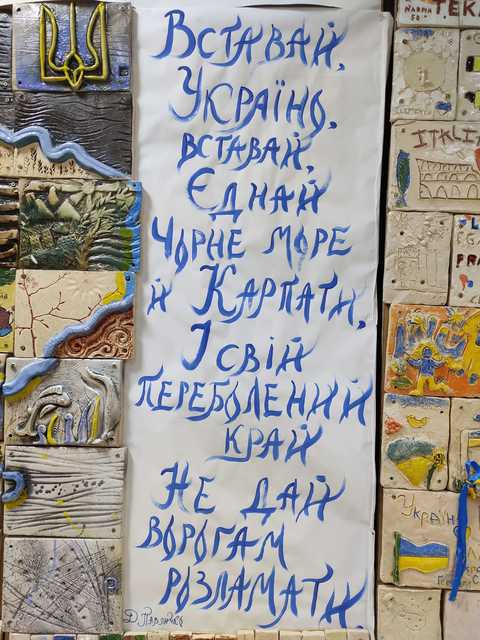 Вставай,
Україно,
вставай,
Єднай
Чорне море
й Карпати,
І свій
переболений
край
Не дай
ворогам
розламати.
Д. Павличко
ITALI
Україн